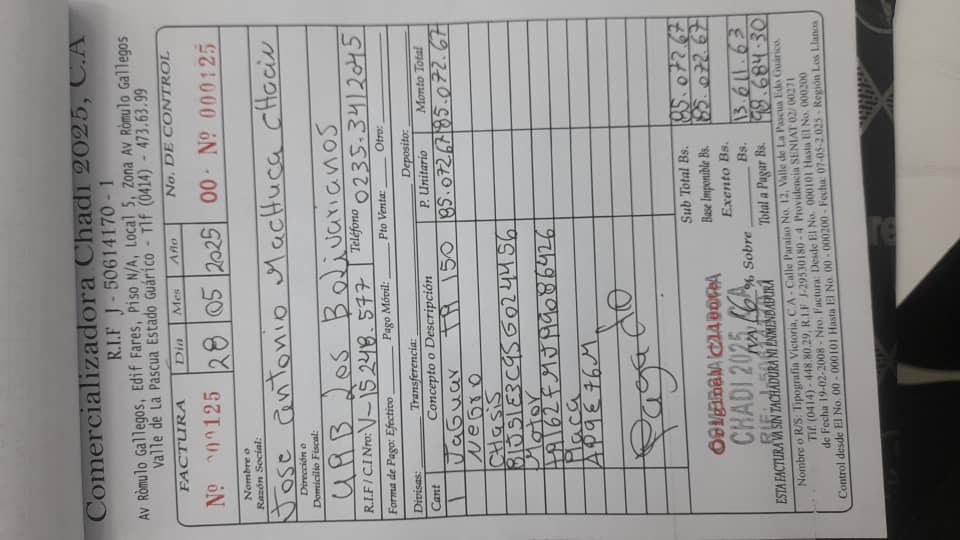 Comercializadora Chadi 2025, C.A
R.I.F J - 50614170 - 1
Av Rómulo Gallegos, Edif Fares, Piso N/A, Local 5, Zona Av Rómulo Gallegos
Valle de La Pascua Estado Guárico - Tlf (0414) - 473.63.99
FACTURA Día Mes Año No. DE CONTROL
Nº 00125 28 05 2025 00 - Nº 000125
Nombre o
Razón Social:
Jose Antonio Machuca CHacin
Dirección o
Domicilio Fiscal:
URB Los Bolivarianos
R.I.F / CI Nro: V-15248.577 Teléfono 0235.3412045
Forma de Pago: Efectivo Pago Móvil: Pto Venta: Otro:
Divisas: Transferencia: Deposito:
Cant Concepto o Descripción P. Unitario Monto Total
1 Jaguar TR 150 85.072.67 85.072.67
Negro
CHasis
Motor
Placa
Pagado
Sub Total Bs. 85.072.67
Base Imponible Bs. 85.072.67
Exento Bs.
IVA 16 % Sobre Bs. 13.611.63
Total a Pagar Bs. 98.684.30
CHADI 2025
ESTA FACTURA VA SIN TACHADURA NI ENMENDADURA
Nombre o R/S: Tipografía Victoria, C. A - Calle Paraíso No. 12, Valle de La Pascua Edo Guárico.
Tlf (0414) - 448.80.29, R.I.F J-29530180 - 4 Providencia SENIAT 02/ 00271
de Fecha 19-02-2008 - Nro. Factura: Desde El No. 000101 Hasta El No. 000200
Control desde El No. 00 - 000101 Hasta El No. 00 - 000200 - Fecha: 07-05-2.025 - Región Los Llanos